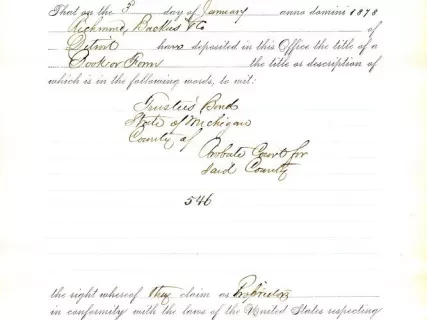 That on the 3d day of January anno domini 1878
Richmond, Backus & Co of
Detroit have deposited in this Office the title of a
Book or Form the title or description of
which is in the following words, to wit:
Trustees' Bond
State of Michigan
County of
Probate Court for
said County
546
the right whereof they claim as Proprietors
in conformity with the laws of the United States respecting